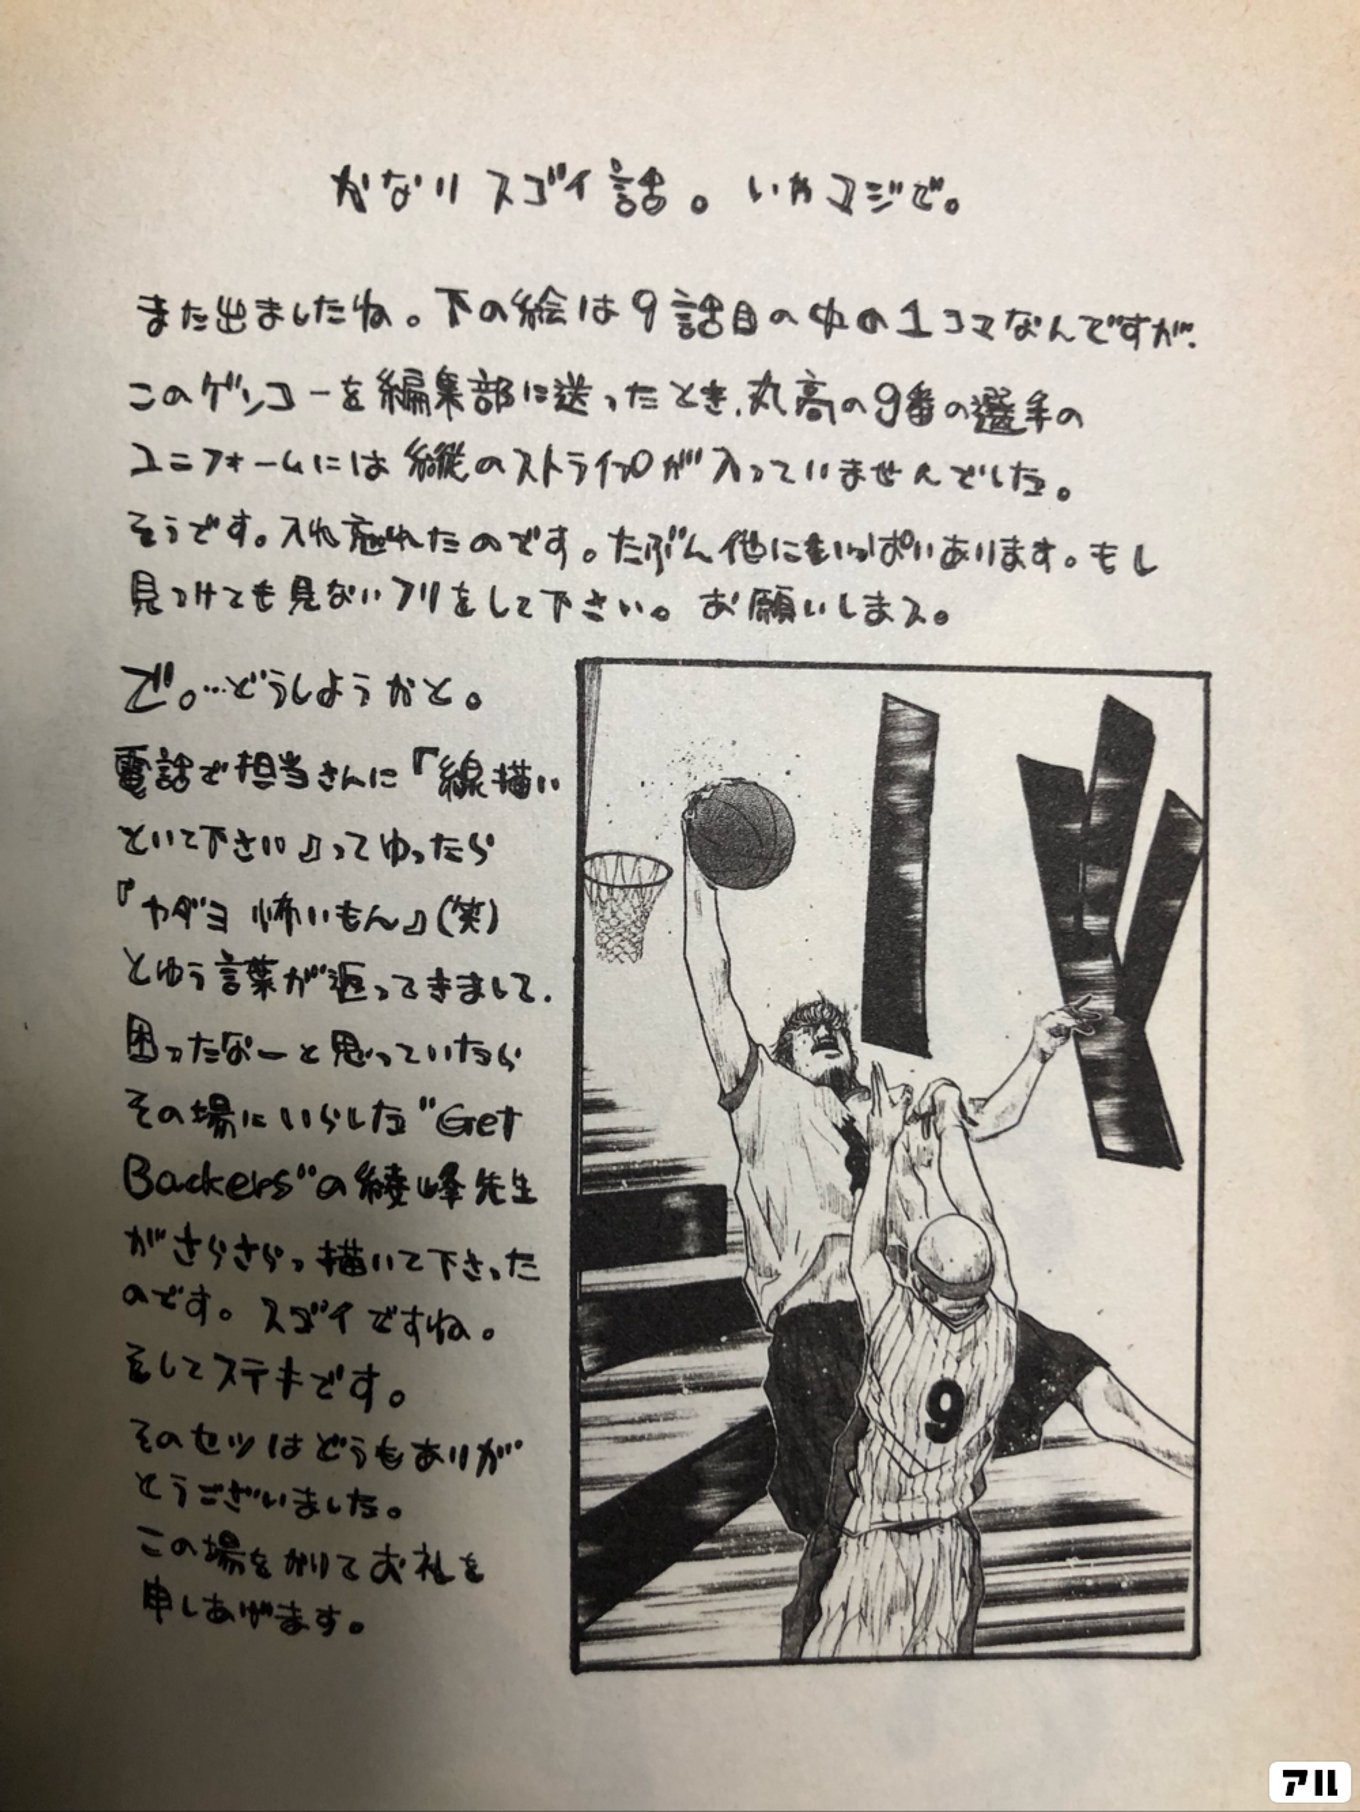 かなりスゴイ話。いやマジで。
また出ましたね。下の絵は9話目の中の1コマなんですが、
このゲンコーを編集部に送ったとき、丸高の9番の選手の
ユニフォームには縦のストライプが入っていませんでした。
そうです。入れ忘れたのです。たぶん他にもいっぱいあります。もし
見つけても見ないフリをして下さい。お願いしまス。
で。…どうしようかと。
電話で担当さんに『線描い
といて下さい』ってゆったら
『ヤダヨ 怖いもん』(笑)
とゆう言葉が返ってきまして、
困ったなーと思っていたら
その場にいらした"Get
Backers"の綾峰先生
がさらさらっ描いて下さった
のです。スゴイですね。
そしてステキです。
そのセツはどうもありが
とうございました。
この場をかりてお礼を
申しあげます。
9
アル